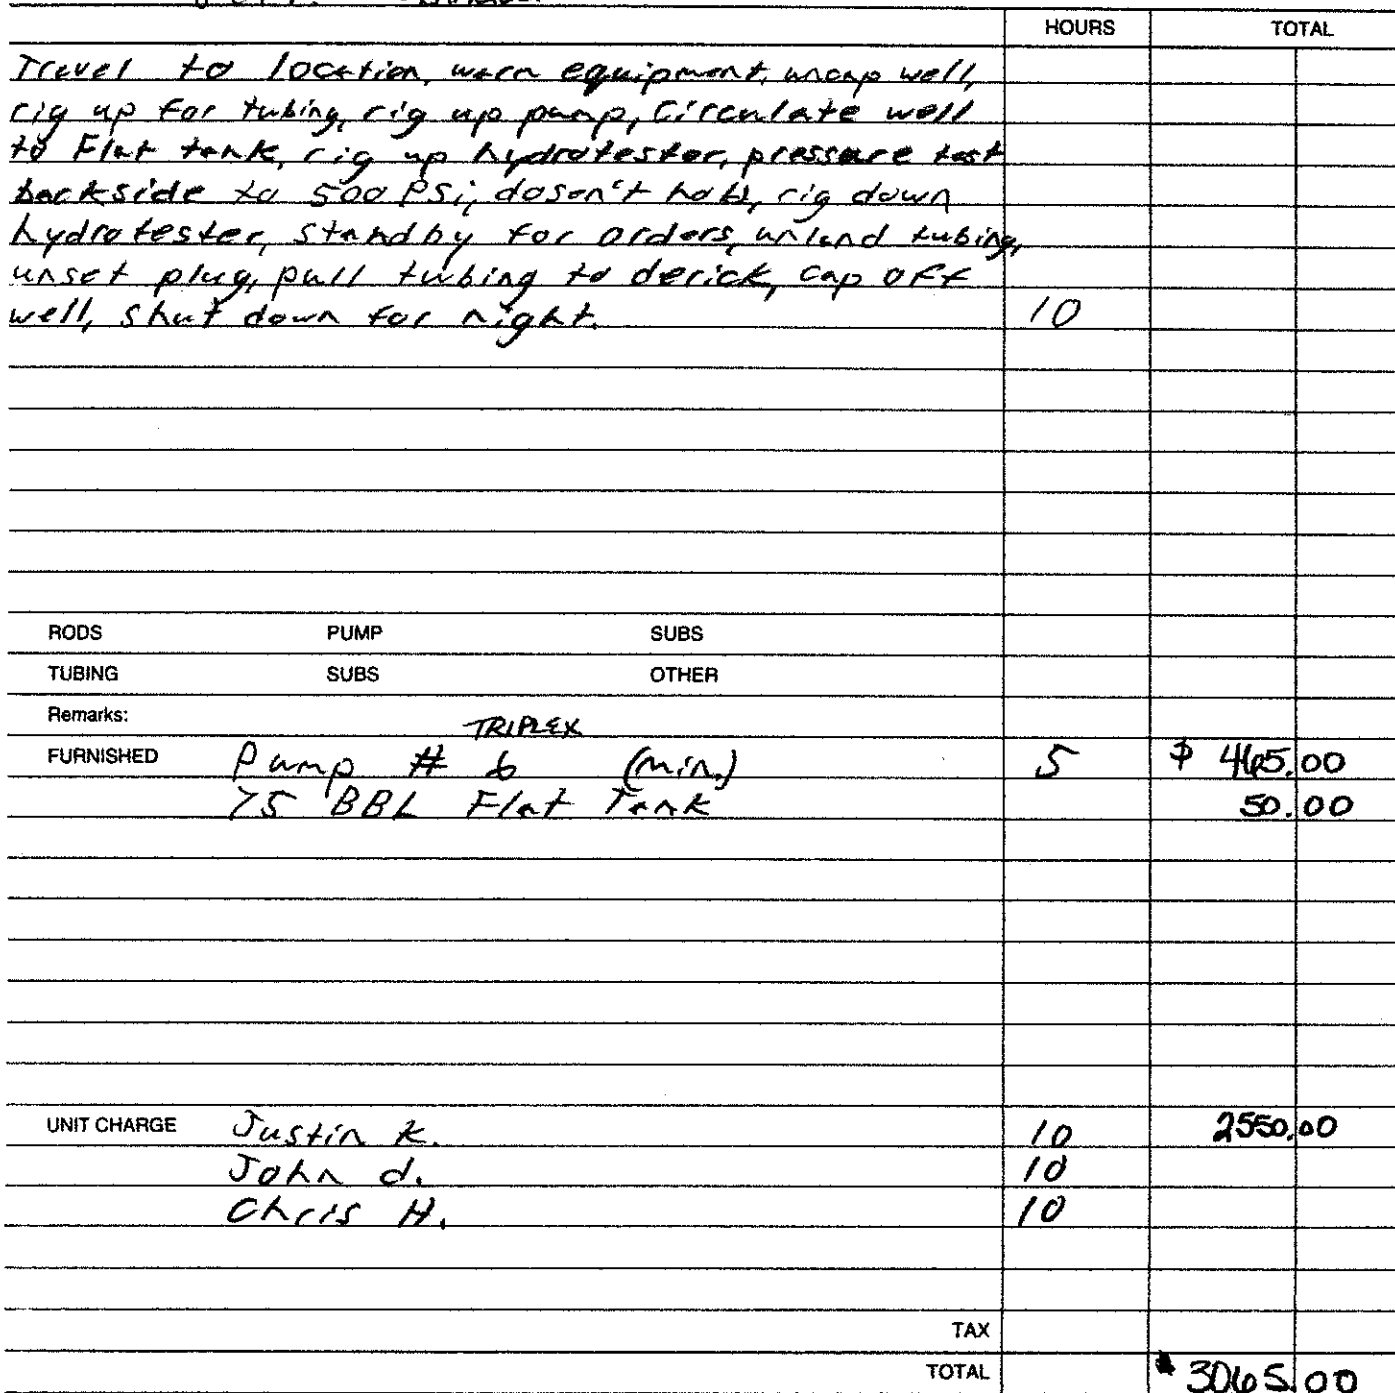 HOURS TOTAL
Travel to location, warm equipment, uncap well,
rig up for tubing, rig up pump, Circulate well
to Flat tank, rig up hydrotester, pressure test
backside to 500 PSi, doson't hold, rig down
hydrotester, Standby for orders, unland tubing,
unset plug, pull tubing to derick, cap off
well, Shut down for night. 10
RODS PUMP SUBS
TUBING SUBS OTHER
Remarks:
TRIPLEX
FURNISHED Pump # 6 (min.) 5 $ 465.00
75 BBL Flat Tank 50.00
UNIT CHARGE Justin K. 10 2550.00
John d. 10
Chris H. 10
TAX
TOTAL $ 3065.00